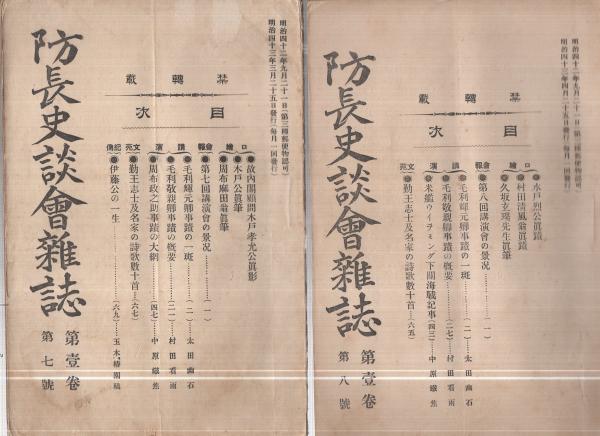 防長史談會雜誌
第壹卷
第七號
明治四十二年九月二十一日(第三種郵便物認可)
明治四十三年三月二十五日發行(每月一回發行)
禁轉載
目次
口繪
●故内閣顧問木戸孝允公眞影
●木戸公眞筆
●周布麻田翁眞筆
會報
●第七回講演會の景況……(一)
講演
●毛利輝元卿事蹟の一斑……(二)
●毛利敬親卿事蹟の概要……(二一)…村田看雨
●周布政之助事蹟の大綱……(四七)…中原
文苑
●勤王志士及名家の詩歌數十首…(六七)
紀傳
●伊藤公の一生……(六九)…玉木
防長史談會雜誌
第壹卷
第八號
明治四十二年九月二十一日(第三種郵便物認可)
明治四十三年四月二十五日發行(每月一回發行)
禁轉載
目次
口繪
●木戸
●村田清風翁眞蹟
●久坂玄瑞先生眞筆
會報
●第八回講演會の景況……(一)
講演
●毛利輝元卿事蹟の一斑……(二)
●毛利敬親卿事蹟の概要……(二七)…村田看雨
●米艦ワイヲミング下關海戰記事(四三)…中原
文苑
●勤王志士及名家の詩歌數十首…(六五)